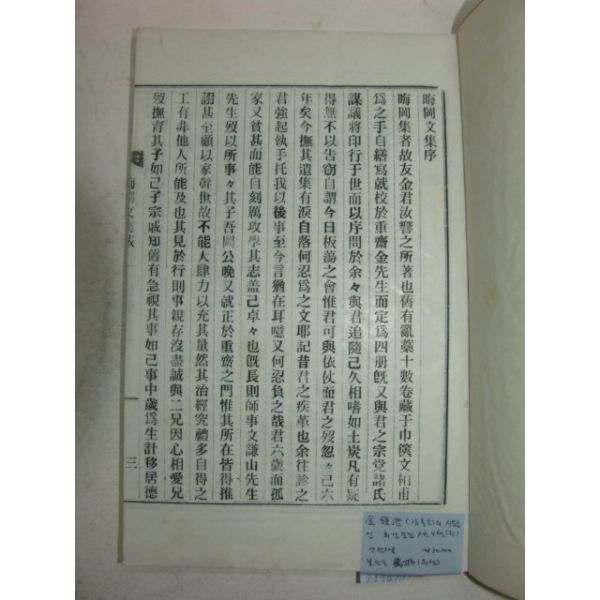 晦岡文集序
晦岡集者故友金君汝響之所著也舊有亂藁十數卷藏于巾篋文相甫
爲之手自繕寫就校於重齋金先生而定爲四册旣又與君之宗黨諸氏
謀議將印行于世而以序問於余々與君追隨己久相嗜如土炭凡有疑
得無不以告窃自謂今日板蕩之會惟君可與依仗而君之歿忽々己六
年矣今撫其遺集有淚自落何忍爲之文耶記昔君之疾革也余往診之
君強起執手托我以後事至今言猶在耳噫又何忍負之哉君六歲而孤
家又貧甚而能自刻厲攻學其志盖己卓々也旣長則師事文謙山先生
先生歿以所事々其子吾岡公晚又就正於重齋之門惟其所在皆得推
詡甚至顧以家幹世故不能大肆力以充其量然其治經究禮多自得之
工有非他人所能及也其見於行則事親存沒盡誠與二兄因心相愛兄
歿撫育其子如己子宗戚知舊有急視其事如己事中歲爲生計移居德
三